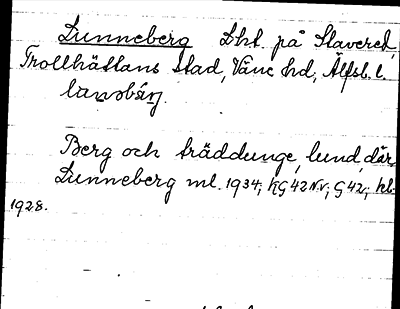 Lunneberg Lht. på Slavered,
Trollhättans stad, Väne hd, Älfsb. l.
Berg och träddunge, lund, där.
Lunneberg ml. 1934; KG 42 NV; G 42; hl.
1928.